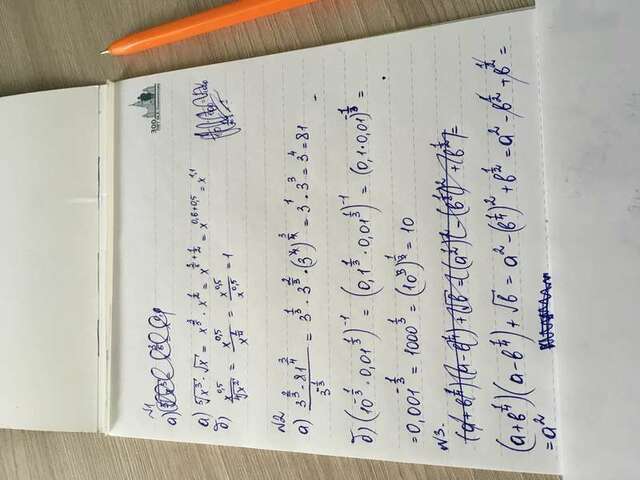 №1
а)
а) ⁵√x³ · √x = x^(3/5) · x^(1/2) = x^(3/5+1/2) = x^(0,6+0,5) = x^(1,1)
б) x^(0,5) / ⁴√x² = x^(0,5) / x^(2/4) = x^(0,5) / x^(0,5) = 1
300
№2
а) (3^(2/3) · 81^(3/4)) / 3^(-1/3) = 3^(1/3) · 3^(2/3) · (3^4)^(3/4) = 3^1 · 3^3 = 3^4 = 81
б) (10^(-1/3) · 0,01^(1/3))^(-1) = (0,1^(1/3) · 0,01^(1/3))^(-1) = (0,1 · 0,01)^(-1/3) =
= 0,001^(-1/3) = 1000^(1/3) = (10^3)^(1/3) = 10
№3.
(a+b^(1/4))(a-b^(1/4)) + √b = a² - (b^(1/4))² + b^(1/2) = a² - b^(1/2) + b^(1/2) =
= a²